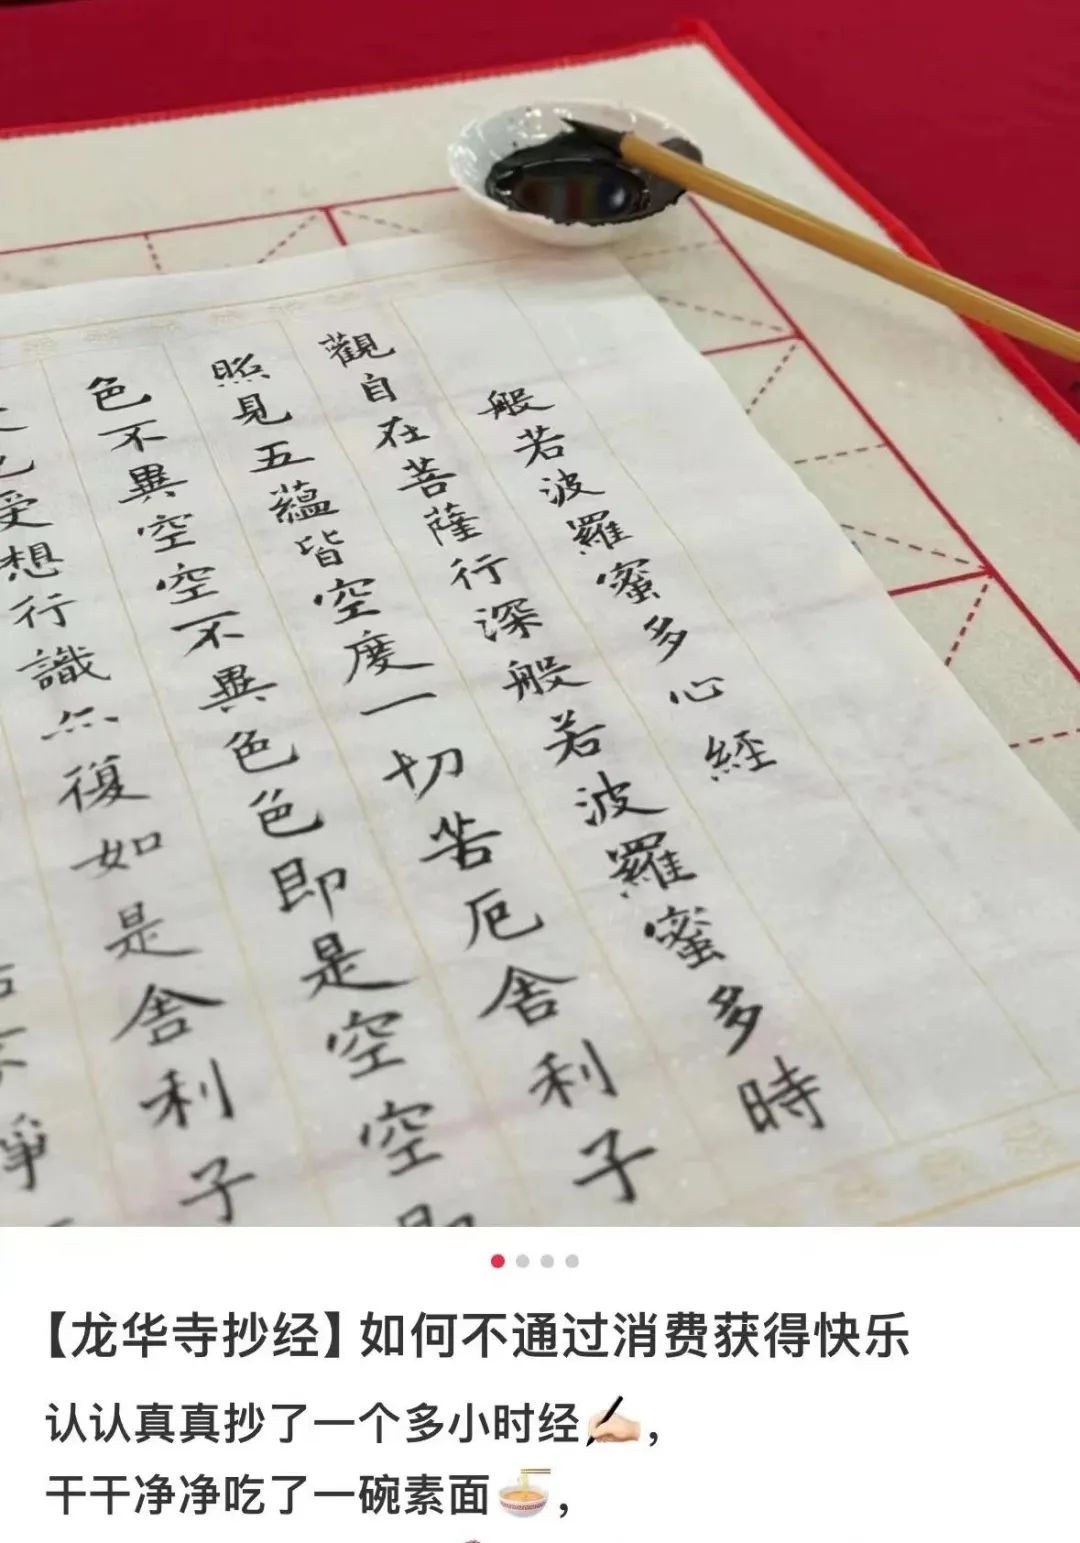 般若波羅蜜多心經
觀自在菩薩行深般若波羅蜜多時
照見五蘊皆空度一切苦厄舍利子
色不異空空不異色色即是空空即
受想行識亦復如是舍利子
淨
【龙华寺抄经】如何不通过消费获得快乐
认认真真抄了一个多小时经✍🏻，
干干净净吃了一碗素面🍜，